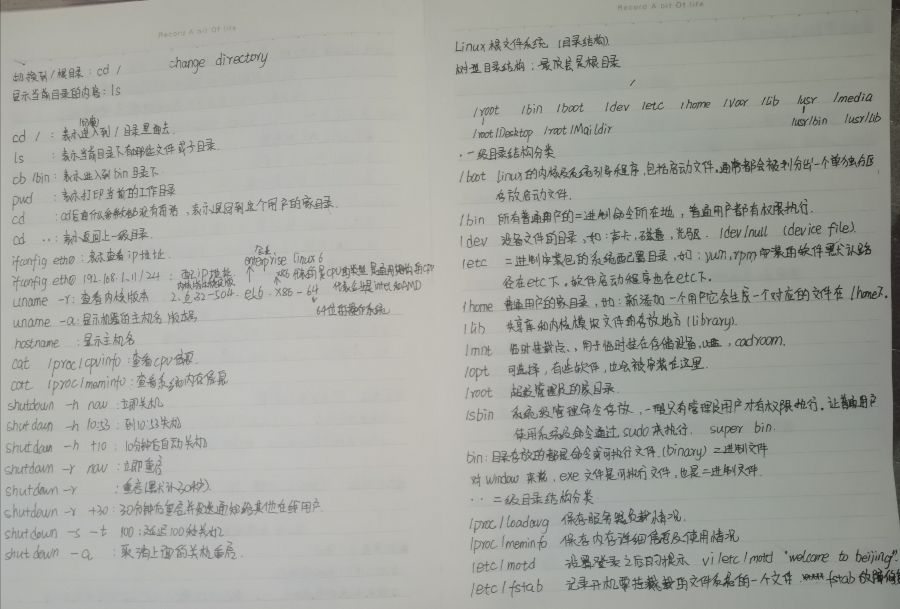 Record A bit Of life
切换到/根目录：cd /  change directory
显示当前目录的内容：ls
cd / ：表示进入到/目录里面去
ls ：表示当前目录下有哪些文件或子目录
cb /bin：表示进入到bin目录下
pwd ：表示打印当前的工作目录
cd ：cd后面什么参数都没有的话，表示返回到这个用户的家目录.
cd .. ：表示返回上一级目录
ifconfig eth0：表示查看ip地址
enterprise linux 6
ifconfig eth0 192.168.1.11/24 ：配ip地址
uname -r：查看内核版本 2.6.32-504.el6.x86-64 代表支持intel和AMD
uname -a：显示机器的主机名 版本号 64位的操作系统
hostname ：显示主机名
cat /proc/cpuinfo：查看cpu信息
cat /proc/meminfo：查看系统内存信息
shutdown -h now：立即关机
shutdown -h 10:53：到10:53关机
shutdown -h +10：10分钟后自动关机
shutdown -r now：立即重启
shutdown -r ：重启(默认30秒)
shutdown -r +30：30分钟后重启并发送通知给其他在线用户
shutdown -s -t 100：延迟100秒关机
shutdown -a ：取消上面的关机重启
Record A bit Of life
Linux根文件系统（目录结构）
树型目录结构：最顶层是根目录
/
/root /bin /boot /dev /etc /home /var /lib /usr /media
/root/Desktop /root/Maildir /usr/bin /usr/lib
·一级目录结构分类
/boot Linux的内核及系统引导程序，包括启动文件，通常都会被划分出一个单独分区
存放启动文件.
/bin 所有普通用户的二进制命令所在地，普通用户都有权限执行.
/dev 设备文件的目录，如：声卡，磁盘，光驱. /dev/null (device file).
/etc 二进制安装包的系统配置目录，如：yum,rpm安装的软件默认路
径在etc下，软件启动程序也在etc下.
/home 普通用户的家目录，如：新添加一个用户它会生成一个对应的文件在/home下.
/lib 共享库和内核模块文件的存放地方(library).
/mnt 临时挂载点，用于临时挂在存储设备，u盘，cadroom.
/opt 可选择，有些软件，也会被安装在这里.
/root 超级管理员的家目录.
/sbin 系统级管理命令存放，一般只有管理员用户才有权限执行. 让普通用户
使用系统级命令通过sudo来执行. super bin.
bin：目录存放的都是命令或可执行文件.(binary)二进制文件
对window来说，exe文件是可执行文件，也是二进制文件.
·· 二级目录结构分类
/proc/loadavg 保存服务器负载情况.
/proc/meminfo 保存内存详细信息及使用情况
/etc/motd 设置登录之后的提示 vi /etc/motd "welcome to beijing".
/etc/fstab 记录开机要挂载的文件系统的一个文件 fstab